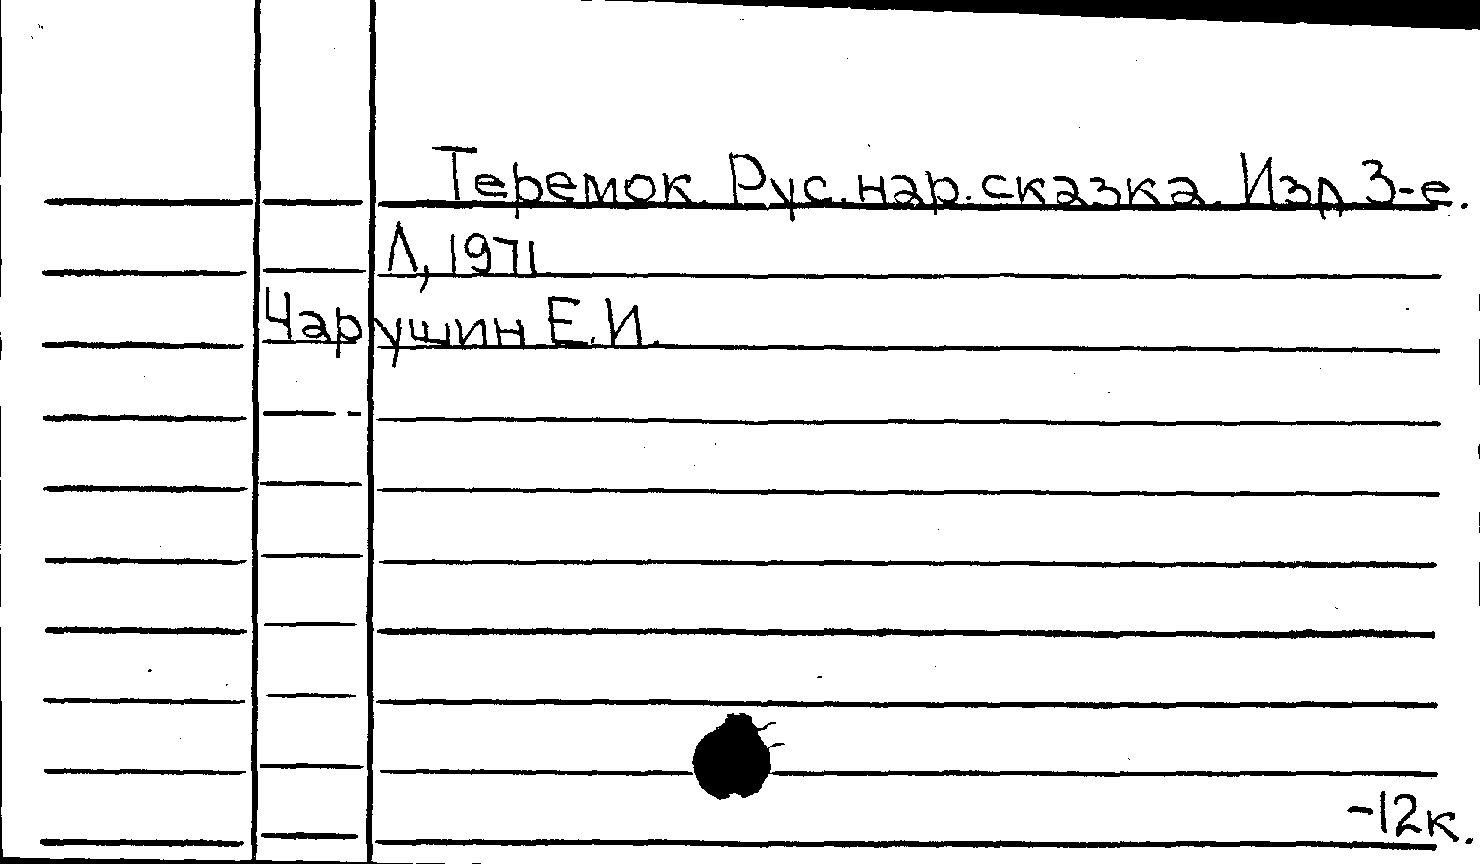 Теремок. Рус. нар. сказка. Изд. 3-е.
Л, 1971
Чарушин Е.И.
-12к.